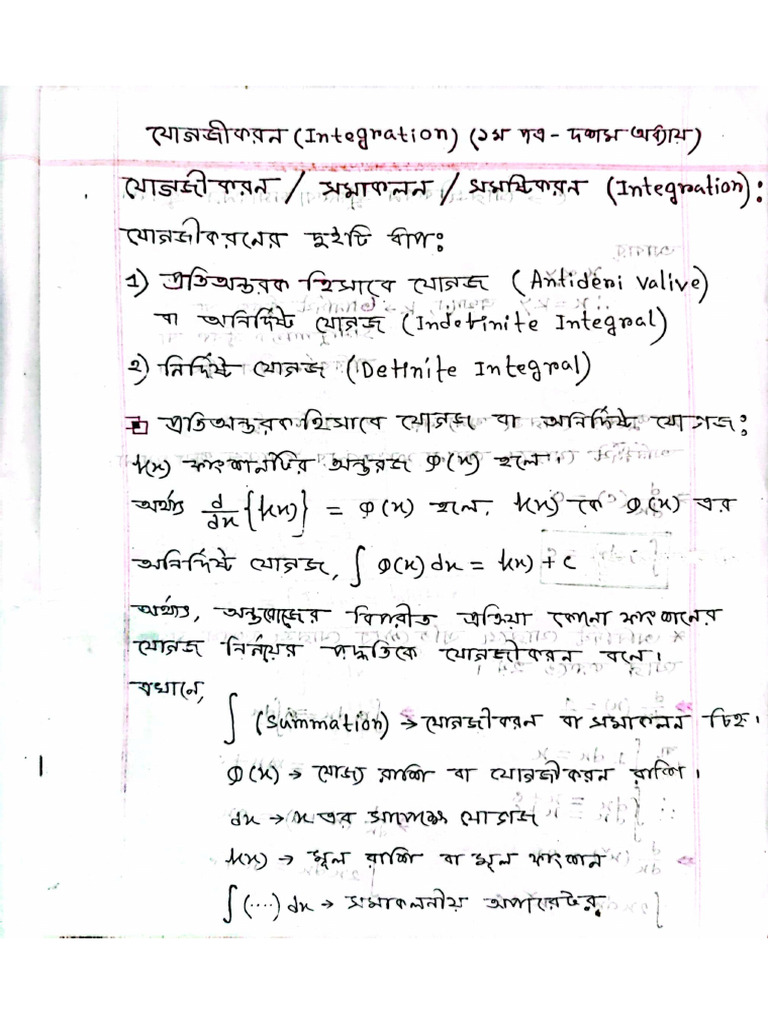 যোগজীকরন (Integration) (১ম পত্র - দশম অধ্যায়)
যোগজীকরন / সমাকলন / সমষ্টিকরন (Integration):
যোগজীকরনের দুইটি ধাপ:
১) প্রতিঅন্তরক হিসাবে যোগজ (Antiderivalive)
বা অনির্দিষ্ট যোগজ (Indefinite Integral)
২) নির্দিষ্ট যোগজ (Definite Integral)
প্রতিঅন্তরক হিসাবে যোগজ বা অনির্দিষ্ট যোগজ:
f(x) ফাংশনটির অন্তরজ φ(x) হলে।
অর্থাৎ d/dx {f(x)} = φ(x) হলে, f(x) কে φ(x) এর
অনির্দিষ্ট যোগজ, ∫ φ(x) dx = f(x) + c
অর্থাৎ, অন্তরজের বিপরীত প্রতিয়া কোনো ফাংশনের
যোগজ নির্নয়ের পদ্ধতিকে যোগজীকরন বলে।
এখানে,
∫ (Summation) → যোগজীকরন বা সমাকলন চিহ্ন।
φ(x) → যোজ্য রাশি বা যোগজীকরন রাশি।
dx → x এর সাপেক্ষে যোগজ
f(x) → মূল রাশি বা মূল ফাংশন
∫ (....) dx → সমাকলনীয় অপারেটর,